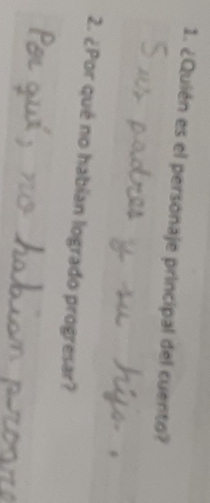 1. ¿Quién es el personaje principal del cuento?
Sus padres y su hijo.
2. ¿Por qué no habían logrado progresar?
Por qué, no habian progre